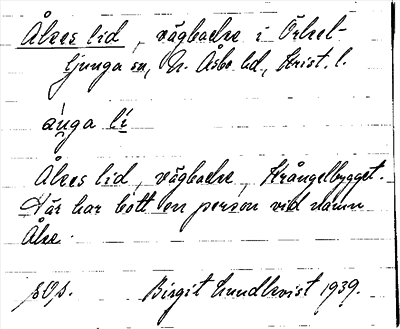 Åkes lid, vägbacke i Örkel-
ljunga sn, N. Åsbo hd, Krist. l.
li
Åkes lid, vägbacke, Skrångelbygget.
Där har bott en person vid namn
Åke.
Birgit Lundkvist 1939.